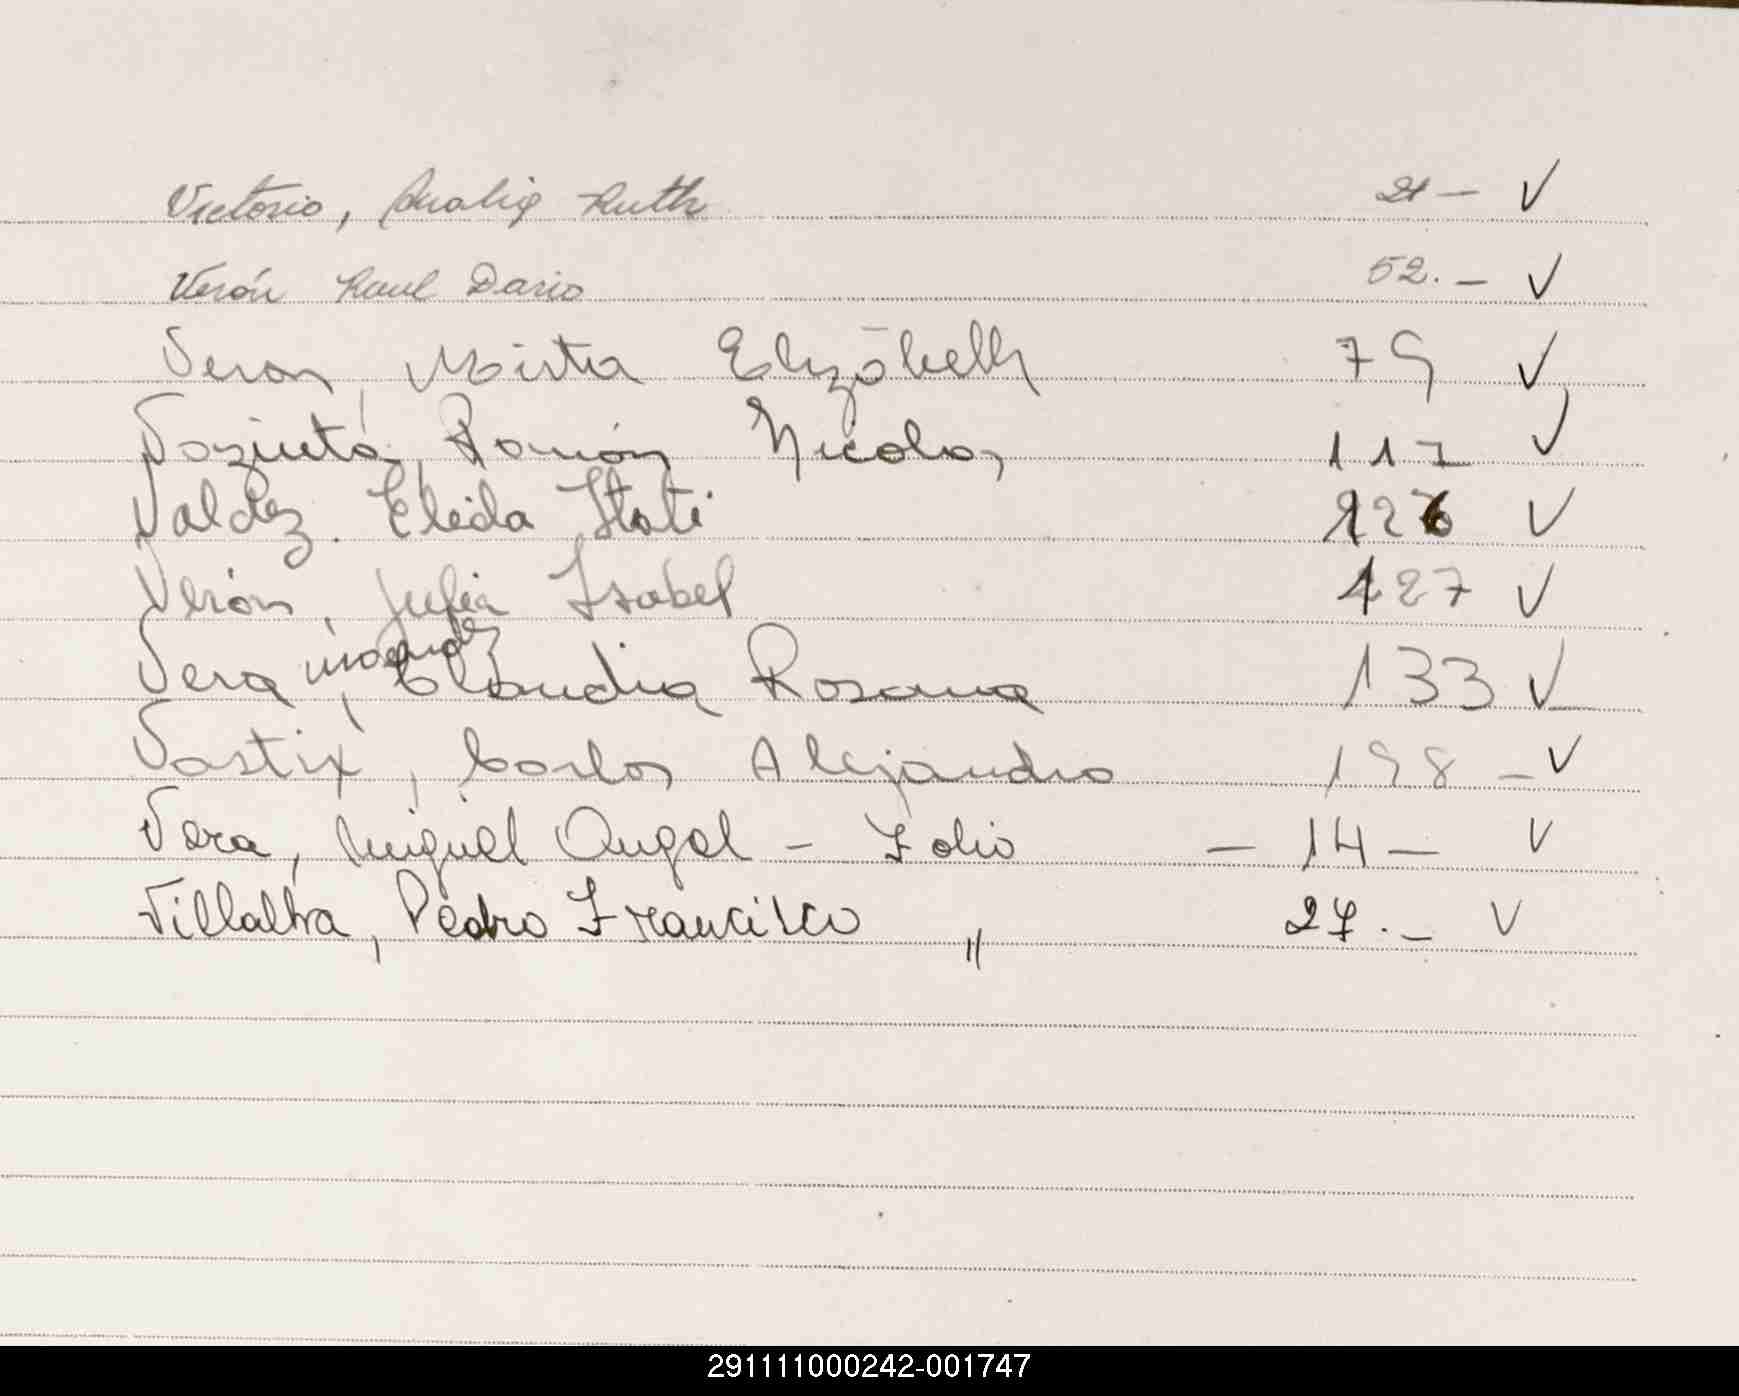 Victorio, Analia Ruth 21 — V
Verón Raul Dario 52. — V
Veron, Mirta Elizabeth 79 V
Ramón Nicolas 117 V
Valdez. Eleida Itati 126 V
Verón, Julia Isabel 127 V
Vera, Claudia Rosana 133 V
Carlos Alejandro 198 — V
Vera, Miguel Angel - Folio — 14 — V
Villalba, Pedro Francisco " 27. — V
291111000242-001747